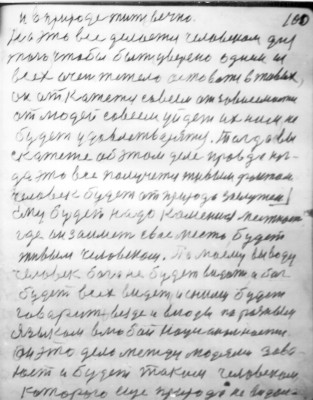 и в природе жить вечно. 100
На это все делается человеком для
того чтобы быть уверено одним и
всех очень тяжело оставать в таких,
он откажется совсем от зависимости
от людей совсем уйдет их ним не
будет удовлетворять. Тогда вы
скажете об этом деле правда ког-
да это все получите живым фактом
человек будет от природы заслужен!
Ему будет надо местность
где он займет свое место будет
живым человеком. По моему выводу
человек бога не будет видать а бог
будет всех видеть и с ним будет
говорить везде и всюду на разным
языком в любой национальности.
Он это дело между людьми заво-
юет и будет таким человеком
которого еще природа не видала